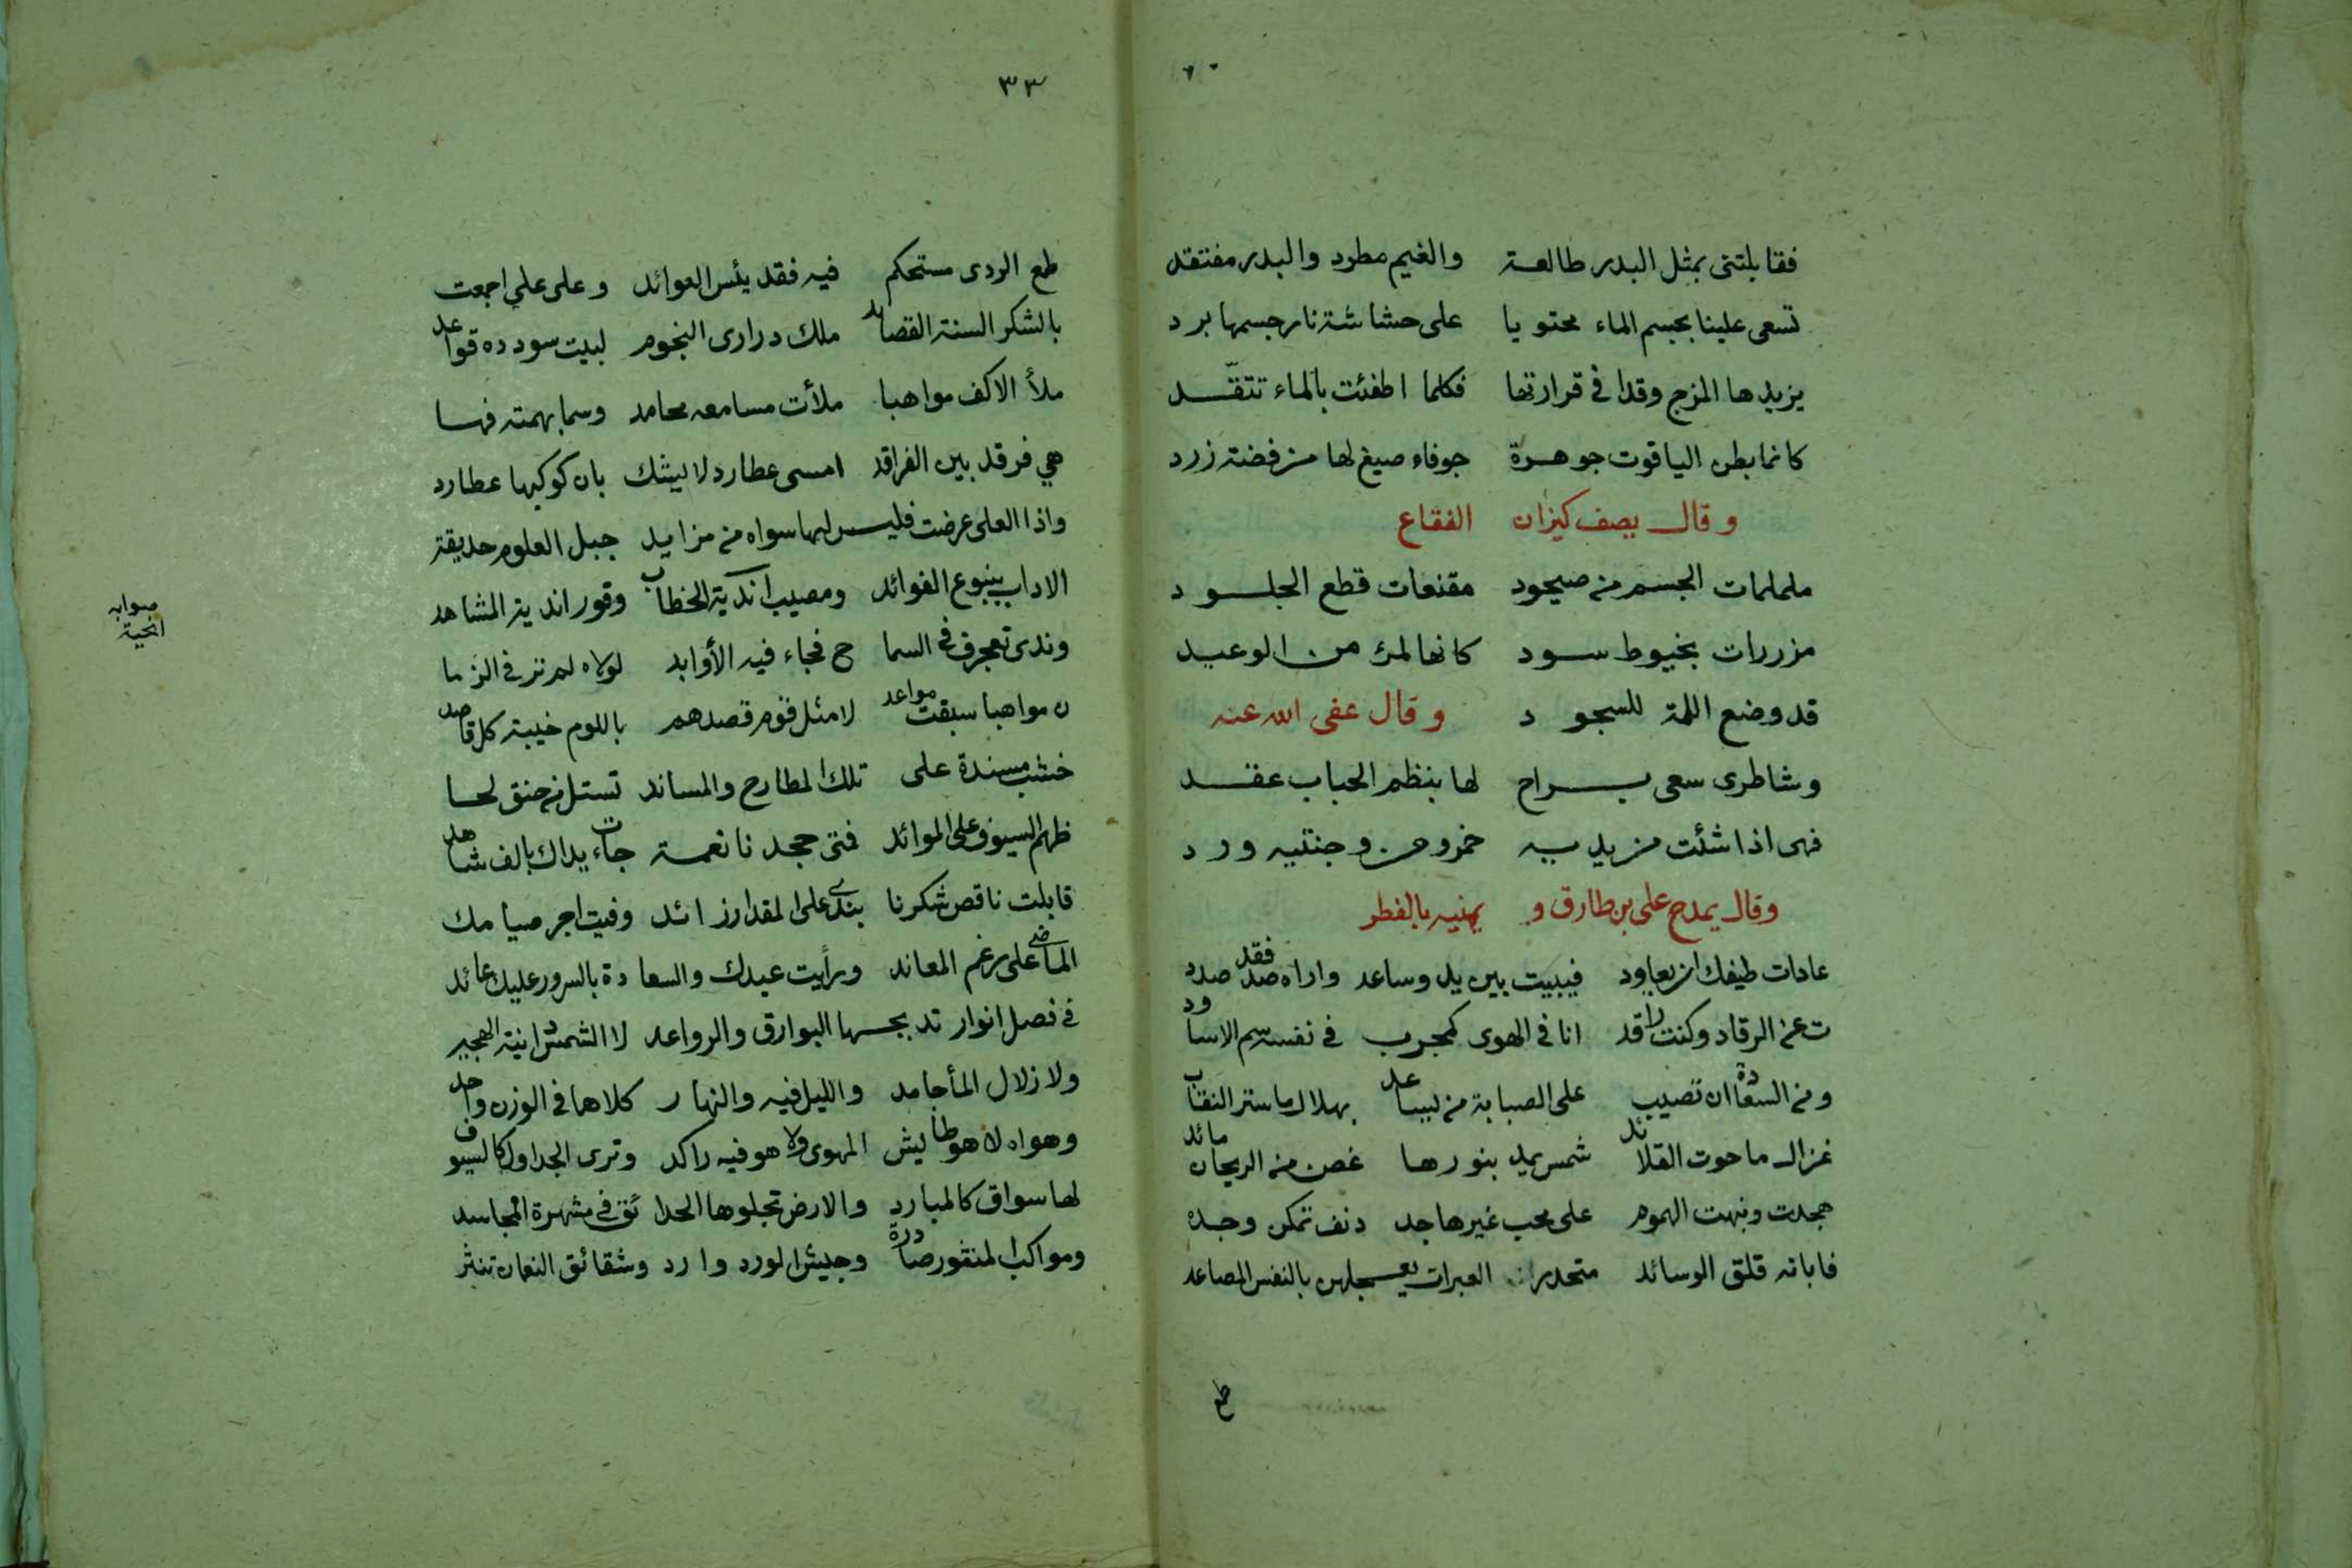 فقابلتنى بمثل البدر طالعة والغيم مطرد والبدر مفتقد
تسعى علينا بجسم الماء محتويا على حشاشة نار جسمها برد
يزيدها المزج وقدا فى قرارتها فكلما اطفئت بالماء تتقد
كانما بطن الياقوت جوهرة جوفاء صيغ لها من فضة زرد
وقال يصف كيزان الفقاع
ململمات الجسم من صيحود مقنعات قطع الجلود
مزررات بخيوط سود كانها لمؤ من الوعيد
قد وضع اللمة للسجود وقال عفى الله عنه
وشاطرى سعى براح لها بنظم الحباب عقد
فهى اذا شئت من يديه خمر ومن وجنتيه ورد
وقال يمدح على بن طارق و يهنيه بالفطر
عادات طيفك ان يعاود فيبيت بين يد وساعد واراه صد فقد صدد
ت عن الرقاد وكنت راقد انا فى الهوى كمجرب فى نفسه سم الاساود
ومن السعادة ان تصيب على الصبابة من يساعد بهلال ما ستر النقاب
غزال ما حوت القلائد شمس يميد بنورها غصن من الريحان مائد
هجدت ونبهت الهموم على محب غير هاجد دنف تمكن وجده
فابانه قلق الوسائد متحدر العبرات يعجلهن بالنفس المصاعد
طمع
٣٣
طمع الردى مستحكم فيه فقد يئس العوائد وعلى علي اجمعت
بالشكر السنة القصايد ملك درارى النجوم لبيت سودده قواعد
ملأ الاكف مواهبا ملأت مسامعه محامد وسما بهمته فها
هي فرقد بين الفراقد امسى عطارد لا يشك بان كوكبها عطارد
واذا العلى عرضت فليس لها سواه من مزايد جبل العلوم حديقة
الاداب ينبوع الفوائد ومصيب اندية الخطاب وقور اندية المشاهد
صوابه
انحية
وندى تعجرف فى السما ح فجاء فيه الأوابد لولاه لم تر فى الزما
ن مواهبا سبقت مواعد لا مثل قوم قصدهم باللوم خيبة كل قاصد
خشب مسندة على تلك المطارح والمساند تستل من حنق لحا
ظهم السيوف على الموائد فمتى جحدنا نعمة جاءت يداك بالف شاهد
قابلت ناقص شكرنا بندى على المقدار زائد وفيت اجر صيامك
الماضى على رغم المعاند ورأيت عيدك والسعا دة بالسرور عليك عائد
فى فصل انوار تدبجها البوارق والرواعد لا الشمس انية الهجير
ولا زلال المأ جامد والليل فيه والنهار كلاهما فى الوزن واحد
وهواه لا هو طايش المهوى ولا هو فيه راكد وترى الجداول كالسيوف
لها سواق كالمبارد والارض تجلوها الحدا ئق فى مشهرة المجاسد
ومواكب المنثور صادرة وجيش الورد وارد وشقائق النعمان تنثر